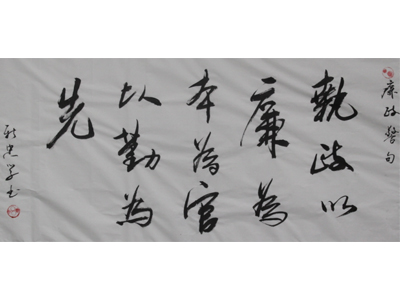 廉政警句
執政以
廉為
本為官
以勤為
先